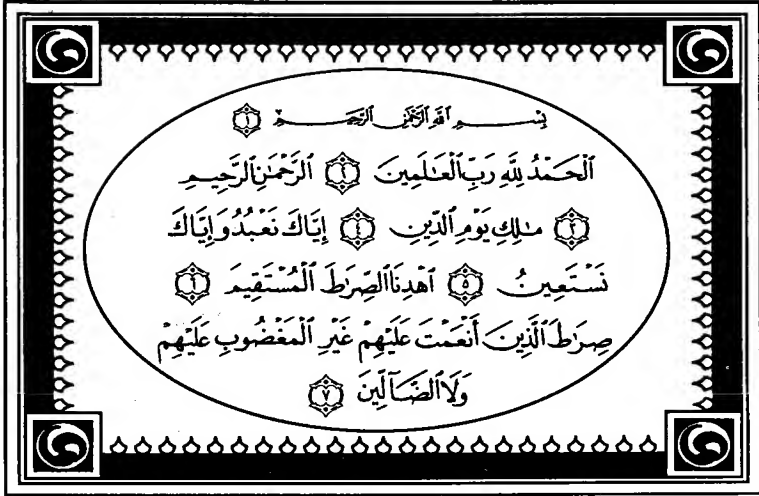 بِسْمِ ٱللَّهِ ٱلرَّحْمَٰنِ ٱلرَّحِيمِ ١
ٱلْحَمْدُ لِلَّهِ رَبِّ ٱلْعَٰلَمِينَ ٢ ٱلرَّحْمَٰنِ ٱلرَّحِيمِ
٣ مَٰلِكِ يَوْمِ ٱلدِّينِ ٤ إِيَّاكَ نَعْبُدُ وَإِيَّاكَ
نَسْتَعِينُ ٥ ٱهْدِنَا ٱلصِّرَٰطَ ٱلْمُسْتَقِيمَ ٦
صِرَٰطَ ٱلَّذِينَ أَنْعَمْتَ عَلَيْهِمْ غَيْرِ ٱلْمَغْضُوبِ عَلَيْهِمْ
وَلَا ٱلضَّآلِّينَ ٧